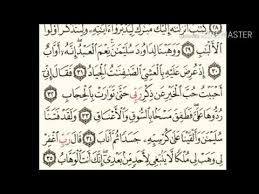 MASTER
كِتَٰبٌ أَنزَلْنَٰهُ إِلَيْكَ مُبَٰرَكٌ لِّيَدَّبَّرُوٓا۟ ءَايَٰتِهِۦ وَلِيَتَذَكَّرَ أُو۟لُوا۟
ٱلْأَلْبَٰبِ ٢٩ وَوَهَبْنَا لِدَاوُۥدَ سُلَيْمَٰنَ نِعْمَ ٱلْعَبْدُ إِنَّهُۥٓ أَوَّابٌ
٣٠ إِذْ عُرِضَ عَلَيْهِ بِٱلْعَشِىِّ ٱلصَّٰفِنَٰتُ ٱلْجِيَادُ ٣١ فَقَالَ إِنِّىٓ
أَحْبَبْتُ حُبَّ ٱلْخَيْرِ عَن ذِكْرِ رَبِّى حَتَّىٰ تَوَارَتْ بِٱلْحِجَابِ ٣٢
رُدُّوهَا عَلَىَّ فَطَفِقَ مَسْحًۢا بِٱلسُّوقِ وَٱلْأَعْنَاقِ ٣٣ وَلَقَدْ فَتَنَّا
سُلَيْمَٰنَ وَأَلْقَيْنَا عَلَىٰ كُرْسِيِّهِۦ جَسَدًا ثُمَّ أَنَابَ ٣٤ قَالَ رَبِّ ٱغْفِرْ
لِى وَهَبْ لِى مُلْكًا لَّا يَنۢبَغِى لِأَحَدٍ مِّنۢ بَعْدِىٓ إِنَّكَ أَنتَ ٱلْوَهَّابُ ٣٥